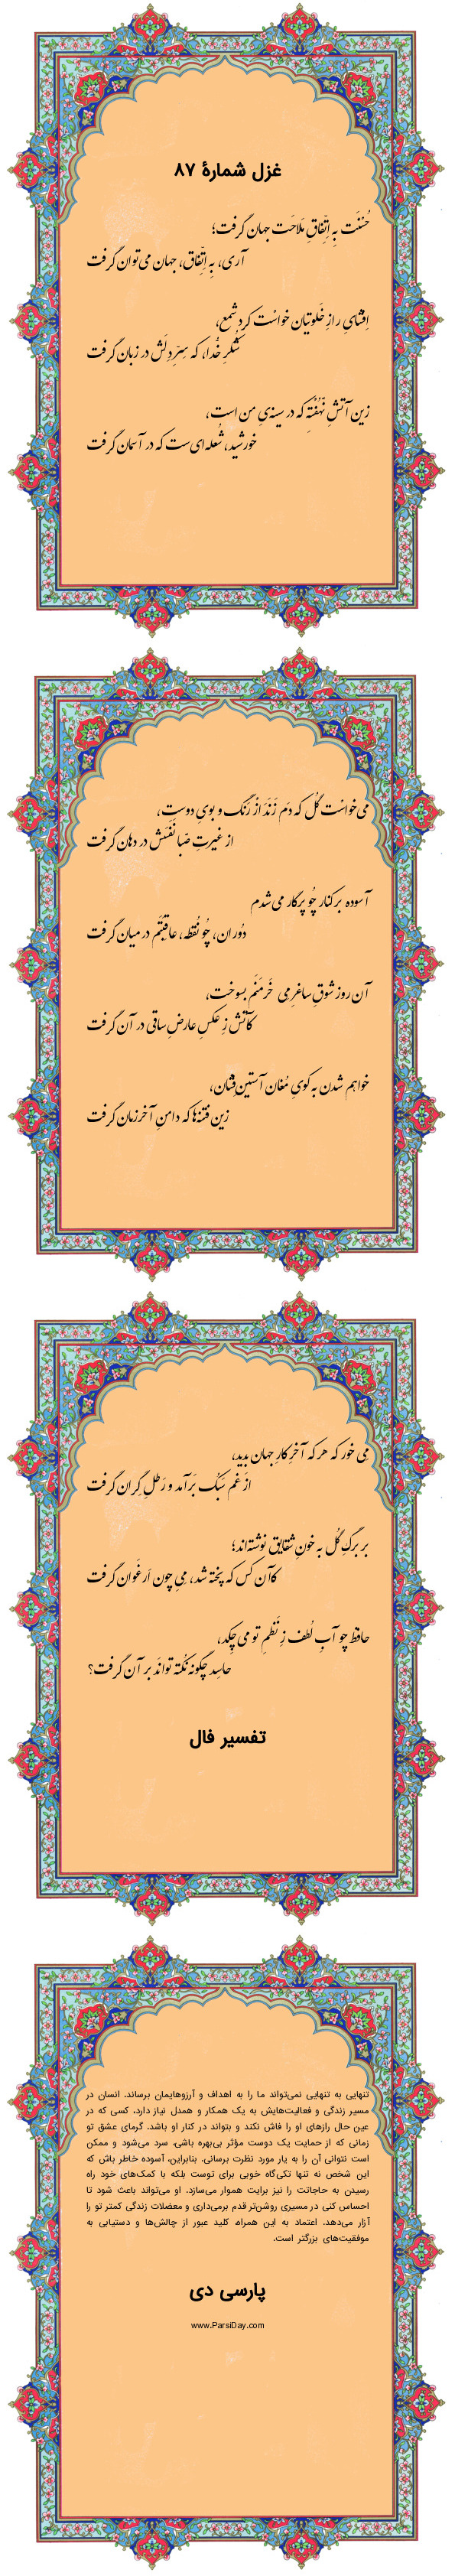 غزل شمارهٔ ۸۷
حُسْنَت بِه اِتِّفاقِ مَلاحَت جهان گرفت؛
آری، بِه اِتِّفاق، جهان می‌توان گرفت
اِفشایِ رازِ خَلوتیان خواست کرد شمع،
شُکرِ خُدا، که سِرِّ دِلَش در زبان گرفت
زین آتشِ نَهُفته که در سینه‌یِ من است،
خورشید، شُعله‌ای‌ست که در آسمان گرفت
می‌خواست گُل که دَم زَنَد از رَنگ و بویِ دوست،
از غیرتِ صَبا نَفَسَش در دهان گرفت
آسوده بر کنار چُو پرگار می‌شدم
دُوران، چُو نُقطه، عاقِبَتَم در میان گرفت
آن روز شوقِ ساغَرِ می خَرمَنَم بسوخت،
کآتش زِ عکسِ عارضِ ساقی در آن گرفت
خواهم شدن به کویِ مُغان آستین‌فِشان،
زین فتنه‌ها که دامنِ آخرزمان گرفت
مِی خور که هر که آخرِ کارِ جهان بدید،
از غم سَبُک بَرآمد و رَطلِ گِران گرفت
بر برگِ گُل به خونِ شقایق نوشته‌اند؛
کآن کس که پخته شد، مِی چون اَرغَوان گرفت
حافظ چو آبِ لُطف زِ نَظمِ تو می‌چِکد،
حاسِد چگونه نُکته توانَد بر آن گرفت؟
تفسیر فال
تنهایی به تنهایی نمی‌تواند ما را به اهداف و آرزوهایمان برساند. انسان در
مسیر زندگی و فعالیت‌هایش به یک همکار و همدل نیاز دارد، کسی که در
عین حال رازهای او را فاش نکند و بتواند در کنار او باشد. گرمای عشق تو
زمانی که از حمایت یک دوست مؤثر بی‌بهره باشی، سرد می‌شود و ممکن
است نتوانی آن را به یار مورد نظرت برسانی. بنابراین، آسوده خاطر باش که
این شخص نه تنها تکی‌گاه خوبی برای توست بلکه با کمک‌های خود راه
رسیدن به حاجاتت را نیز برایت هموار می‌سازد. او می‌تواند باعث شود تا
احساس کنی در مسیری روشن‌تر قدم برمی‌داری و معضلات زندگی کمتر تو را
آزار می‌دهد. اعتماد به این همراه، کلید عبور از چالش‌ها و دستیابی به
موفقیت‌های بزرگتر است.
پارسی دی
www.ParsiDay.com